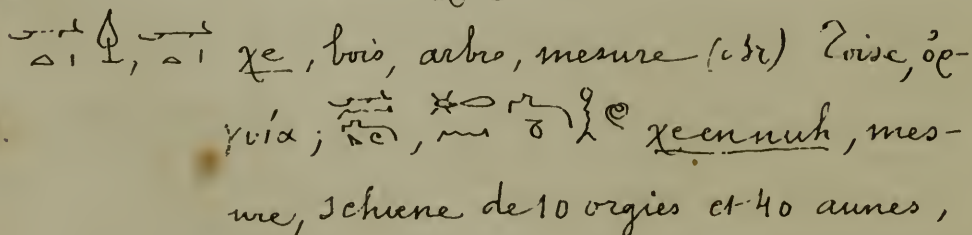 χe, bois, arbre, mesure Toise, ὀρ-
γυιά; χeennuh, mes-
ure, schene de 10 orgies et 40 aunes,